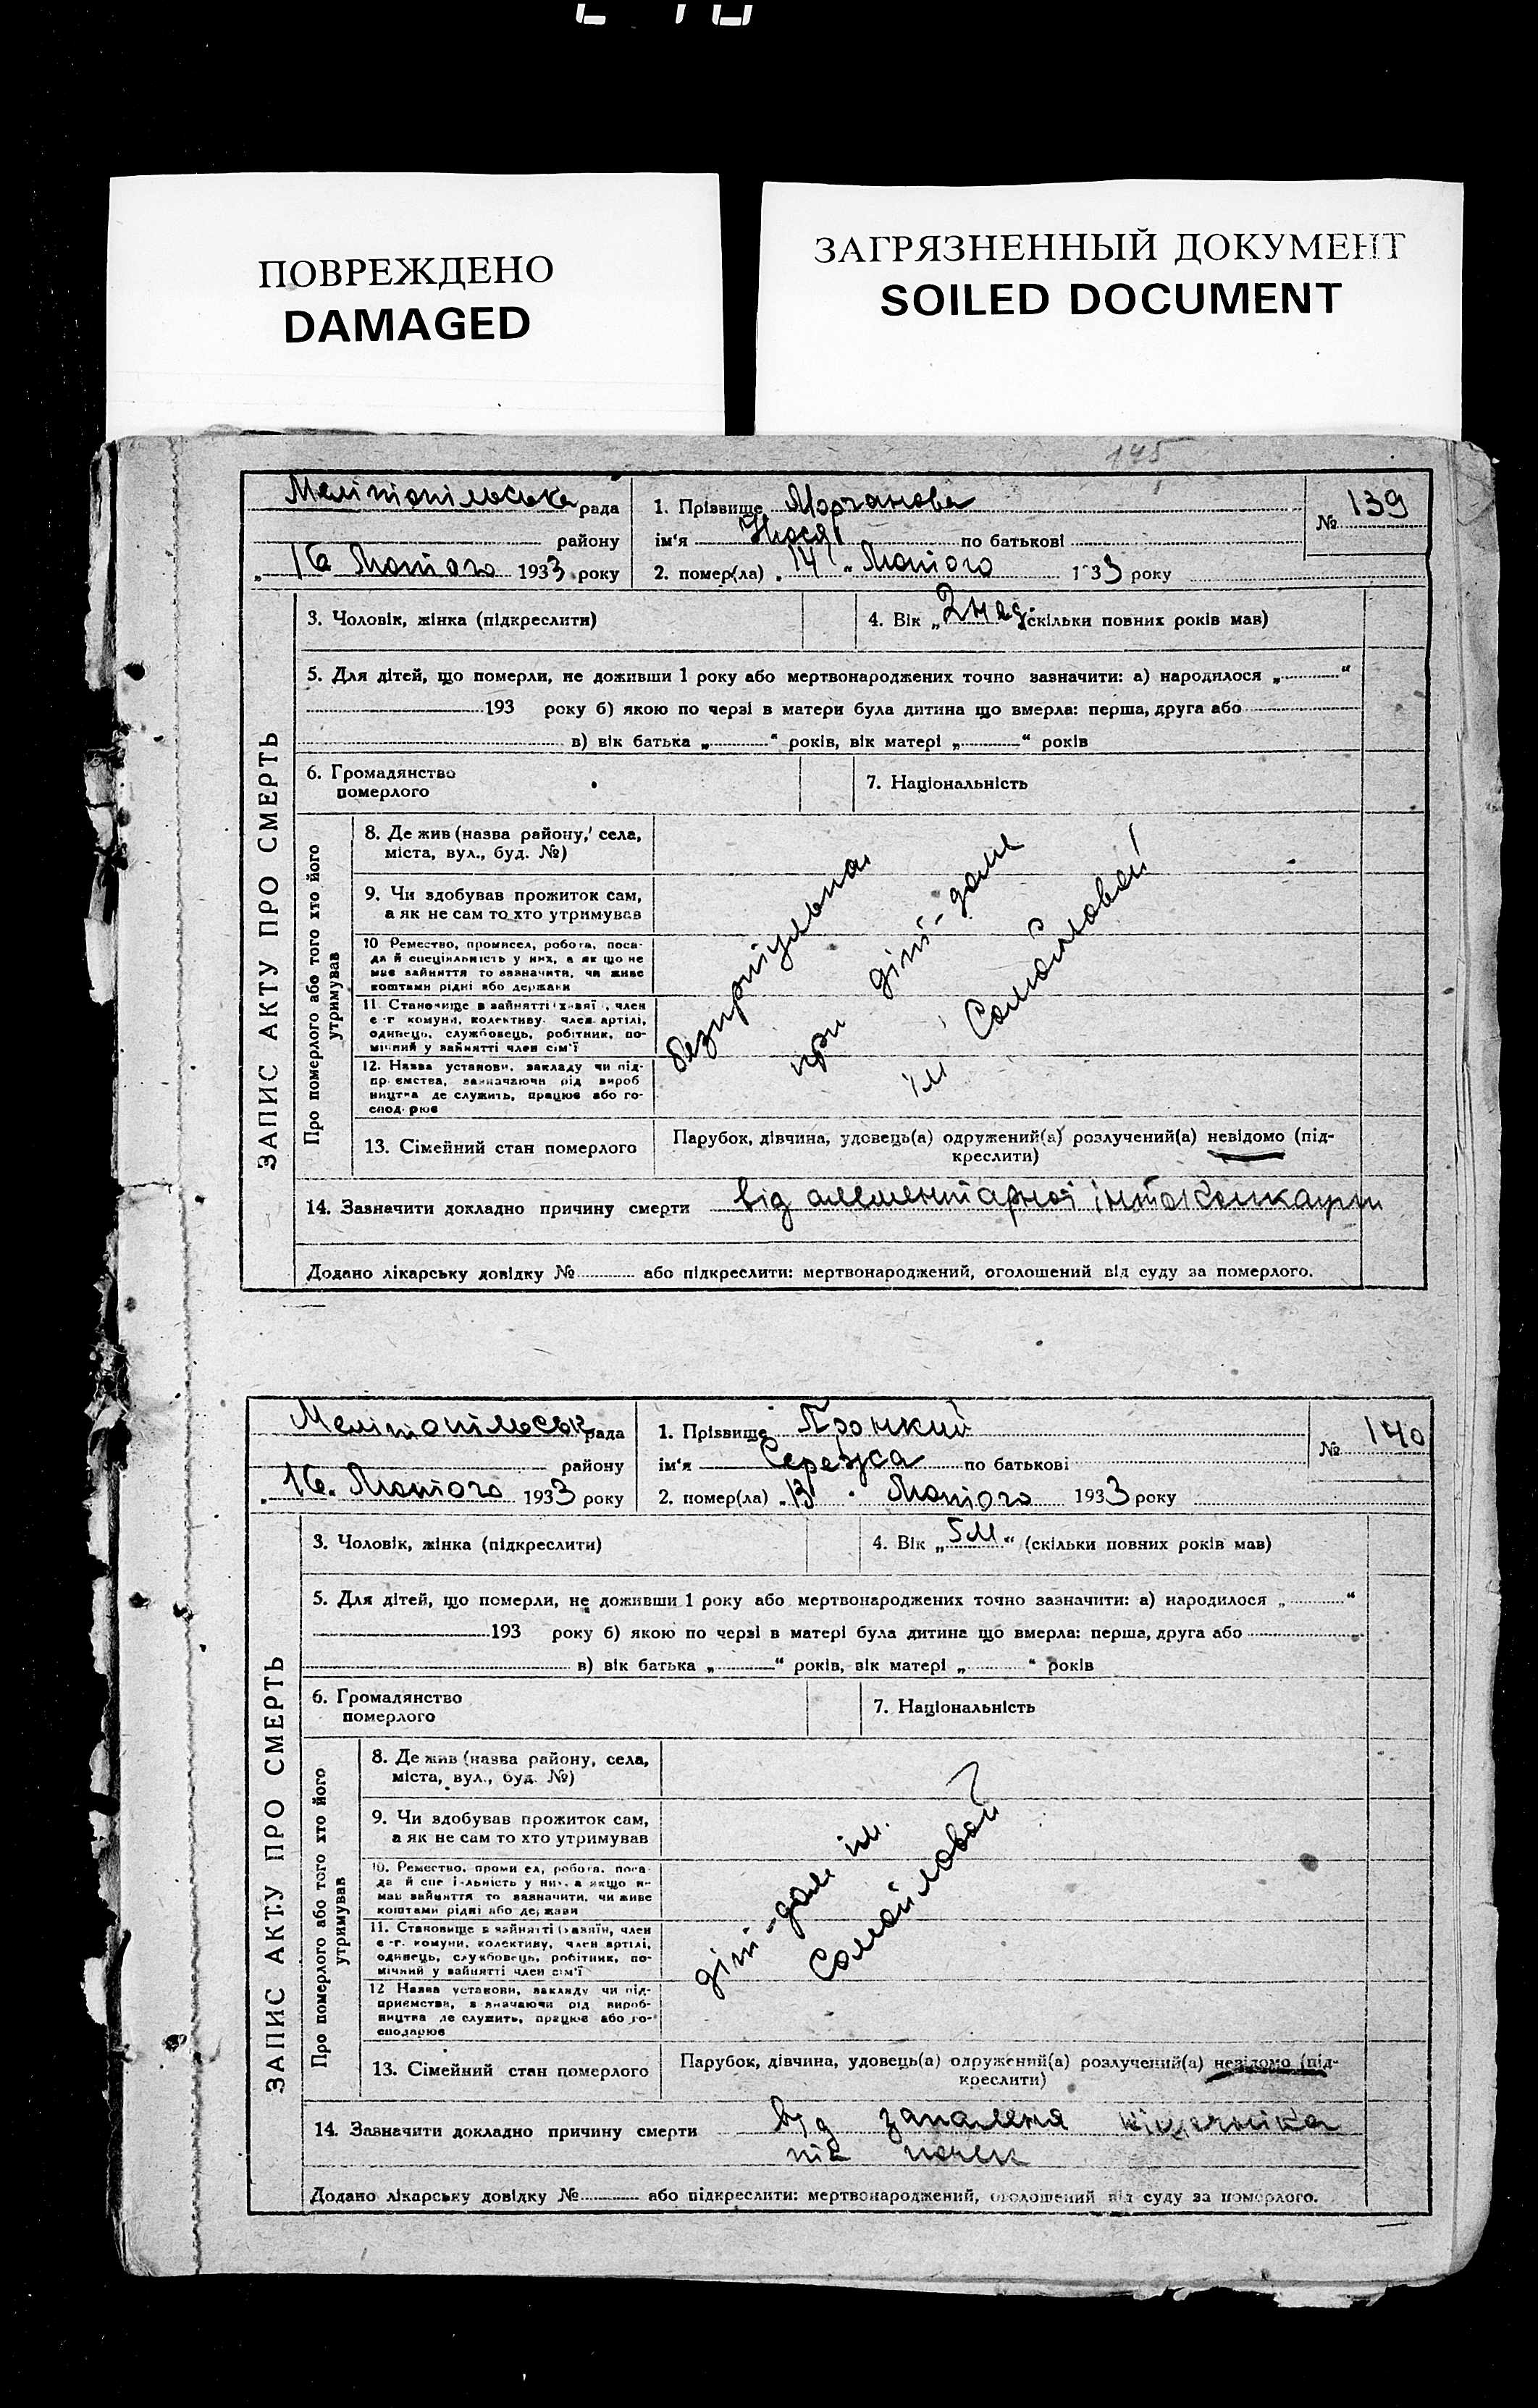 ПОВРЕЖДЕНО
DAMAGED
ЗАГРЯЗНЕННЫЙ ДОКУМЕНТ
SOILED DOCUMENT
145
Мелітопільська рада
району
„ 16 Лютого 1933 року
1. Прізвище Морганова
ім'я Нюся по батькові
2. помер(ла) „ 14 „ Лютого 1933 року
№ 139
ЗАПИС АКТУ ПРО СМЕРТЬ
3. Чоловік, жінка (підкреслити)
4. Вік „ скільки повних років мав)
5. Для дітей, що померли, не доживши 1 року або мертвонароджених точно зазначити: а) народилося „ “
193 року б) якою по черзі в матери була дитина що вмерла: перша, друга або
в) вік батька „ “ років, вік матері „ “ років
6. Громадянство
померлого
7. Національність
Про померлого або того хто його
утримував
8. Де жив (назва району, села,
міста, вул., буд. №)
9. Чи здобував прожиток сам,
а як не сам то хто утримував
10 Ремество, промисел, робота, поса-
да й спеціяльність у них, а як що не
має зайняття то зазначити, чи живе
коштами рідні або держави
11. Становище в зайнятті член
с-г комуни, колективу, член артілі,
одинець, службовець, робітник, по-
мічний у зайнятті член сім'ї
12. Назва установи, закладу чи під-
приємства, зазначаючи рід вироб
ництва де служить, працює або го-
спод рює
безпритульна
при діт-домі
ім Самойловой
13. Сімейний стан померлого
Парубок, дівчина, удовець(а) одружений(а) розлучений(а) невідомо (під-
креслити)
14. Зазначити докладно причину смерти від алементарної
Додано лікарську довідку № або підкреслити: мертвонароджений, оголошений від суду за померлого.
Мелітопільськ рада
району
„ 16. Лютого 1933 року
1. Прізвище
ім'я Сережа по батькові
2. помер(ла) „ 13 „ Лютого 1933 року
№ 140
ЗАПИС АКТУ ПРО СМЕРТЬ
3. Чоловік, жінка (підкреслити)
4. Вік „ 5 м “ (скільки повних років мав)
5. Для дітей, що померли, не доживши 1 року або мертвонароджених точно зазначити: а) народилося „ “
193 року б) якою по черзі в матері була дитина що вмерла: перша, друга або
в) вік батька „ “ років, вік матері „ “ років
6. Громадянство
померлого
7. Національність
Про померлого або того хто його
утримував
8. Де жив (назва району, села,
міста, вул., буд. №)
9. Чи здобував прожиток сам,
а як не сам то хто утримував
10. Ремество, проми ел, робота, поса-
да й спе і-льність у них, а якщо н-
має зайняття то зазначити, чи живе
коштами рідні або держави
11. Становище в зайнятті (хазяїн, член
с-г. комуни, колективу, член артілі,
одинець, службовець, робітник, по-
мічний у зайнятті член сім'ї
12 Назва установи, закладу чи під-
приємства, зазначаючи рід вироб-
ництва де служить, працює або го-
сподарює
діт-домі ім.
Самойловой
13. Сімейний стан померлого
Парубок, дівчина, удовець(а) одружений(а) розлучений(а) невідомо (під-
креслити)
14. Зазначити докладно причину смерти від запаленя
почек
Додано лікарську довідку № або підкреслити: мертвонароджений, оголошений від суду за померлого.